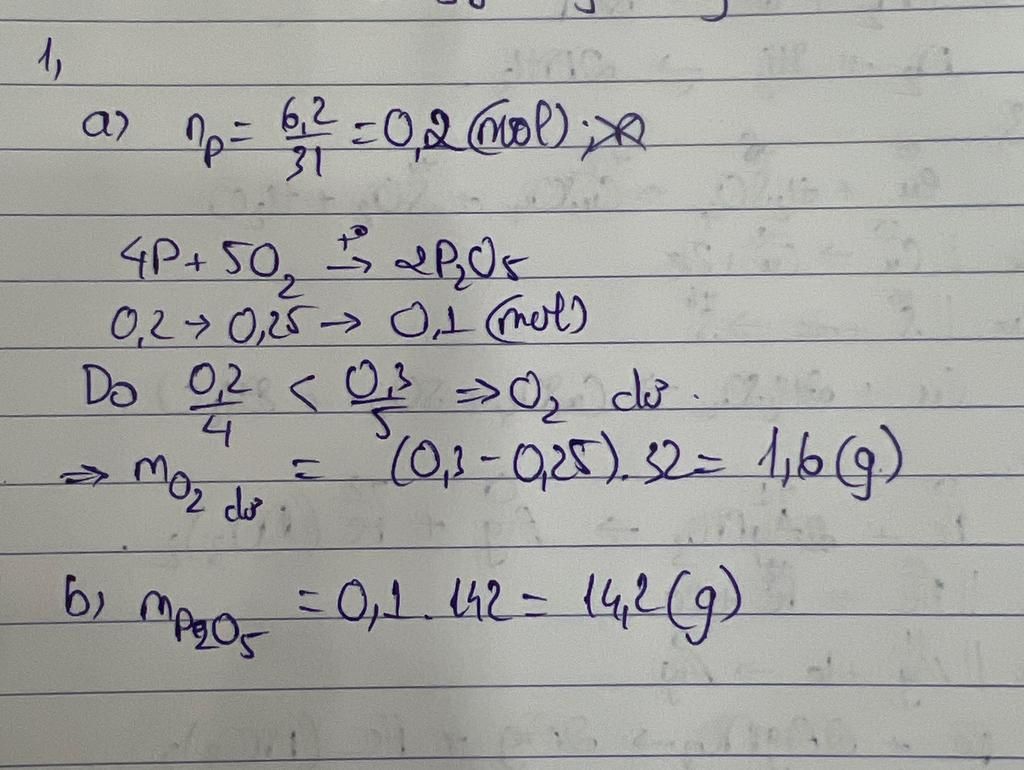 1,
a) nP = 6,2/31 = 0,2 (mol);
4P + 5O2 t°→ 2P2O5
0,2 → 0,25 → 0,1 (mol)
Do 0,2/4 < 0,3/5 ⇒ O2 dư.
⇒ mO2 dư = (0,3 - 0,25).32 = 1,6 (g)
b) mP2O5 = 0,1.142 = 14,2 (g)